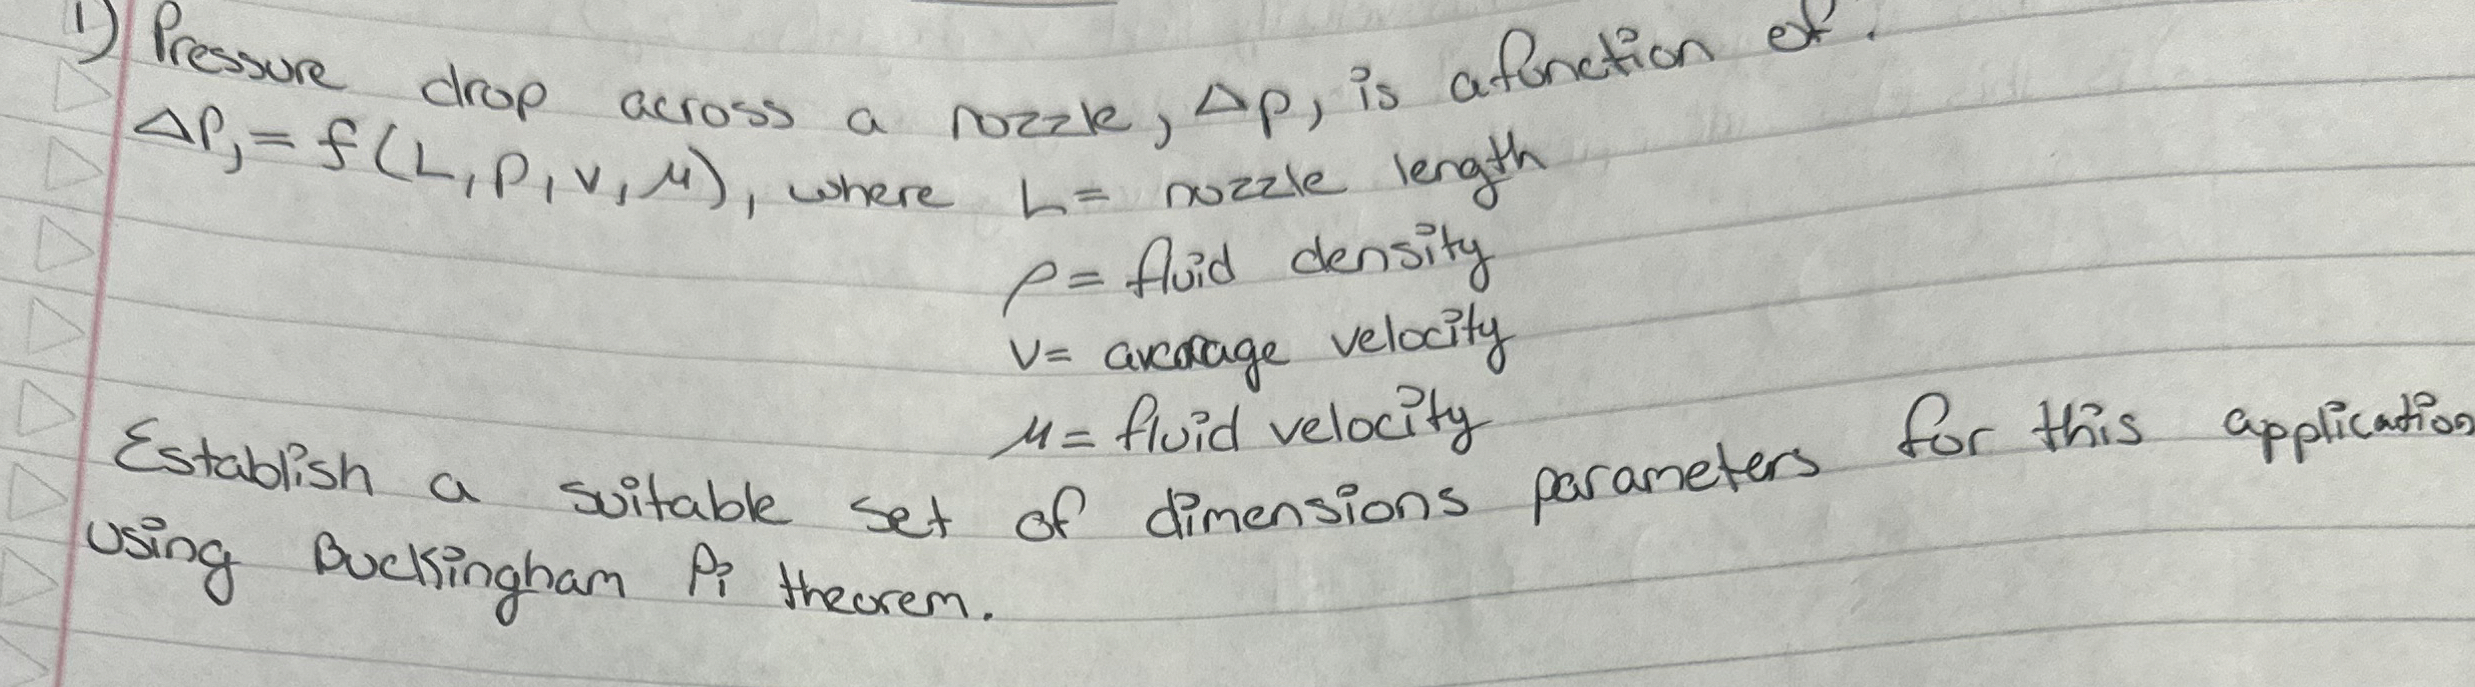 1) Pressure drop across a nozzle, Δp, is a function of.
ΔP, = f(L, ρ, v, μ), where L = nozzle length
ρ = fluid density
v = average velocity
μ = fluid velocity
Establish a suitable set of dimensions parameters for this application
using Buckingham Pi theorem.